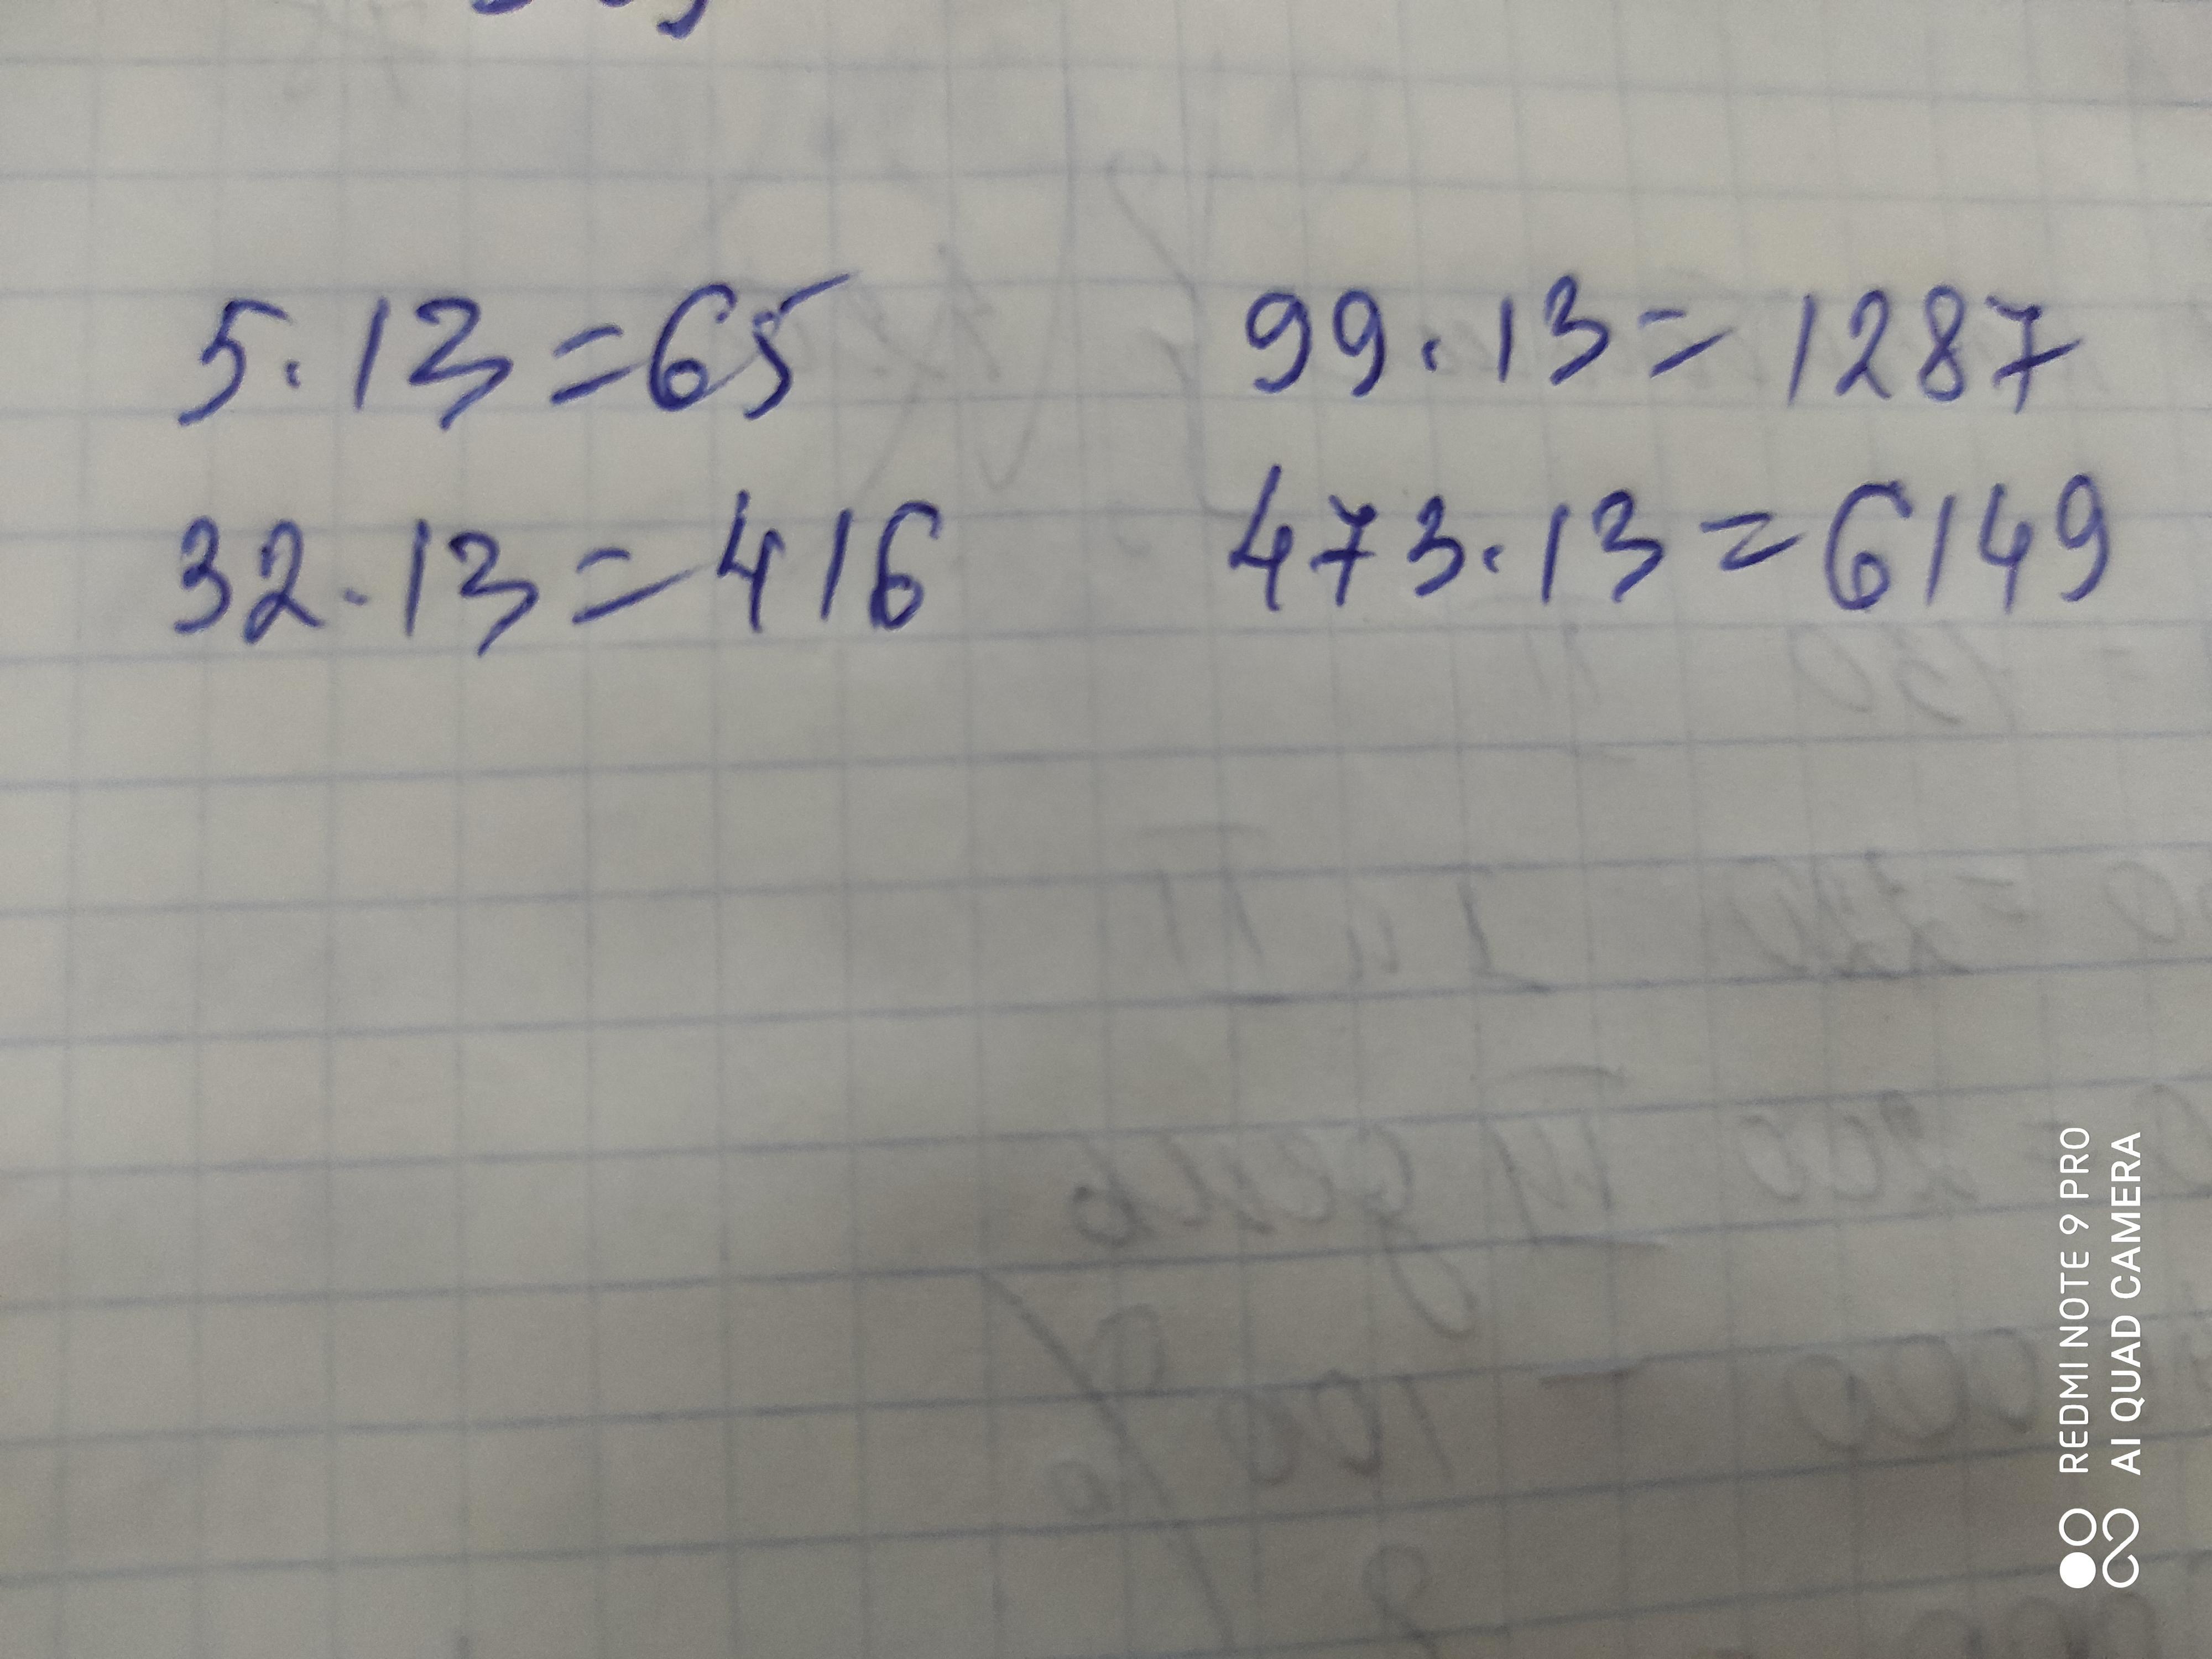 5.13=65 99.13=1287
32.13=416 473.13=6149
REDMI NOTE 9 PRO
AI QUAD CAMERA